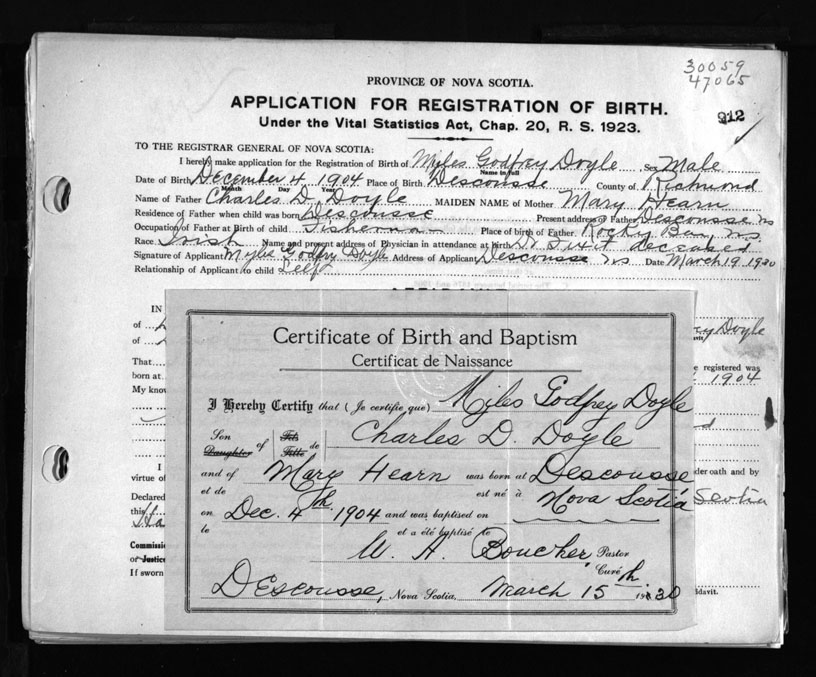 30059
47065
PROVINCE OF NOVA SCOTIA.
APPLICATION FOR REGISTRATION OF BIRTH.
912
Under the Vital Statistics Act, Chap. 20, R. S. 1923.
TO THE REGISTRAR GENERAL OF NOVA SCOTIA:
I hereby make application for the Registration of Birth of Miles Godfrey Doyle Sex Male
Name in full
Date of Birth December 4 1904 Place of Birth Descousse County of Richmond
Month Day Year
Name of Father Charles D. Doyle MAIDEN NAME of Mother Mary Hearn
Residence of Father when child was born Descousse Present address of Father Descousse NS
Occupation of Father at Birth of child Fisherman Place of birth of Father Rocky Bay N.S.
Race Irish Name and present address of Physician in attendance at birth Dr. deceased
Signature of Applicant Myles Godfrey Doyle Address of Applicant Descousse NS Date March 19 1930
Relationship of Applicant to child Self
IN
of
Doyle
of
That
e registered was
born at
1904
My know
Certificate of Birth and Baptism
Certificat de Naissance
I Hereby Certify that (Je certifie que) Miles Godfrey Doyle
Son Daughter of Fils Fille de Charles D. Doyle
and of Mary Hearn was born at Descousse
et de est né à Nova Scotia
on Dec. 4th 1904 and was baptised on
le et a été baptisé le
W. A. Boucher, Pastor
Curé
DEscousse, Nova Scotia, March 15th 1930
I
virtue of
der oath and by
Declared
Scotia
this
Commissi
or Justice
If sworn
fidavit.